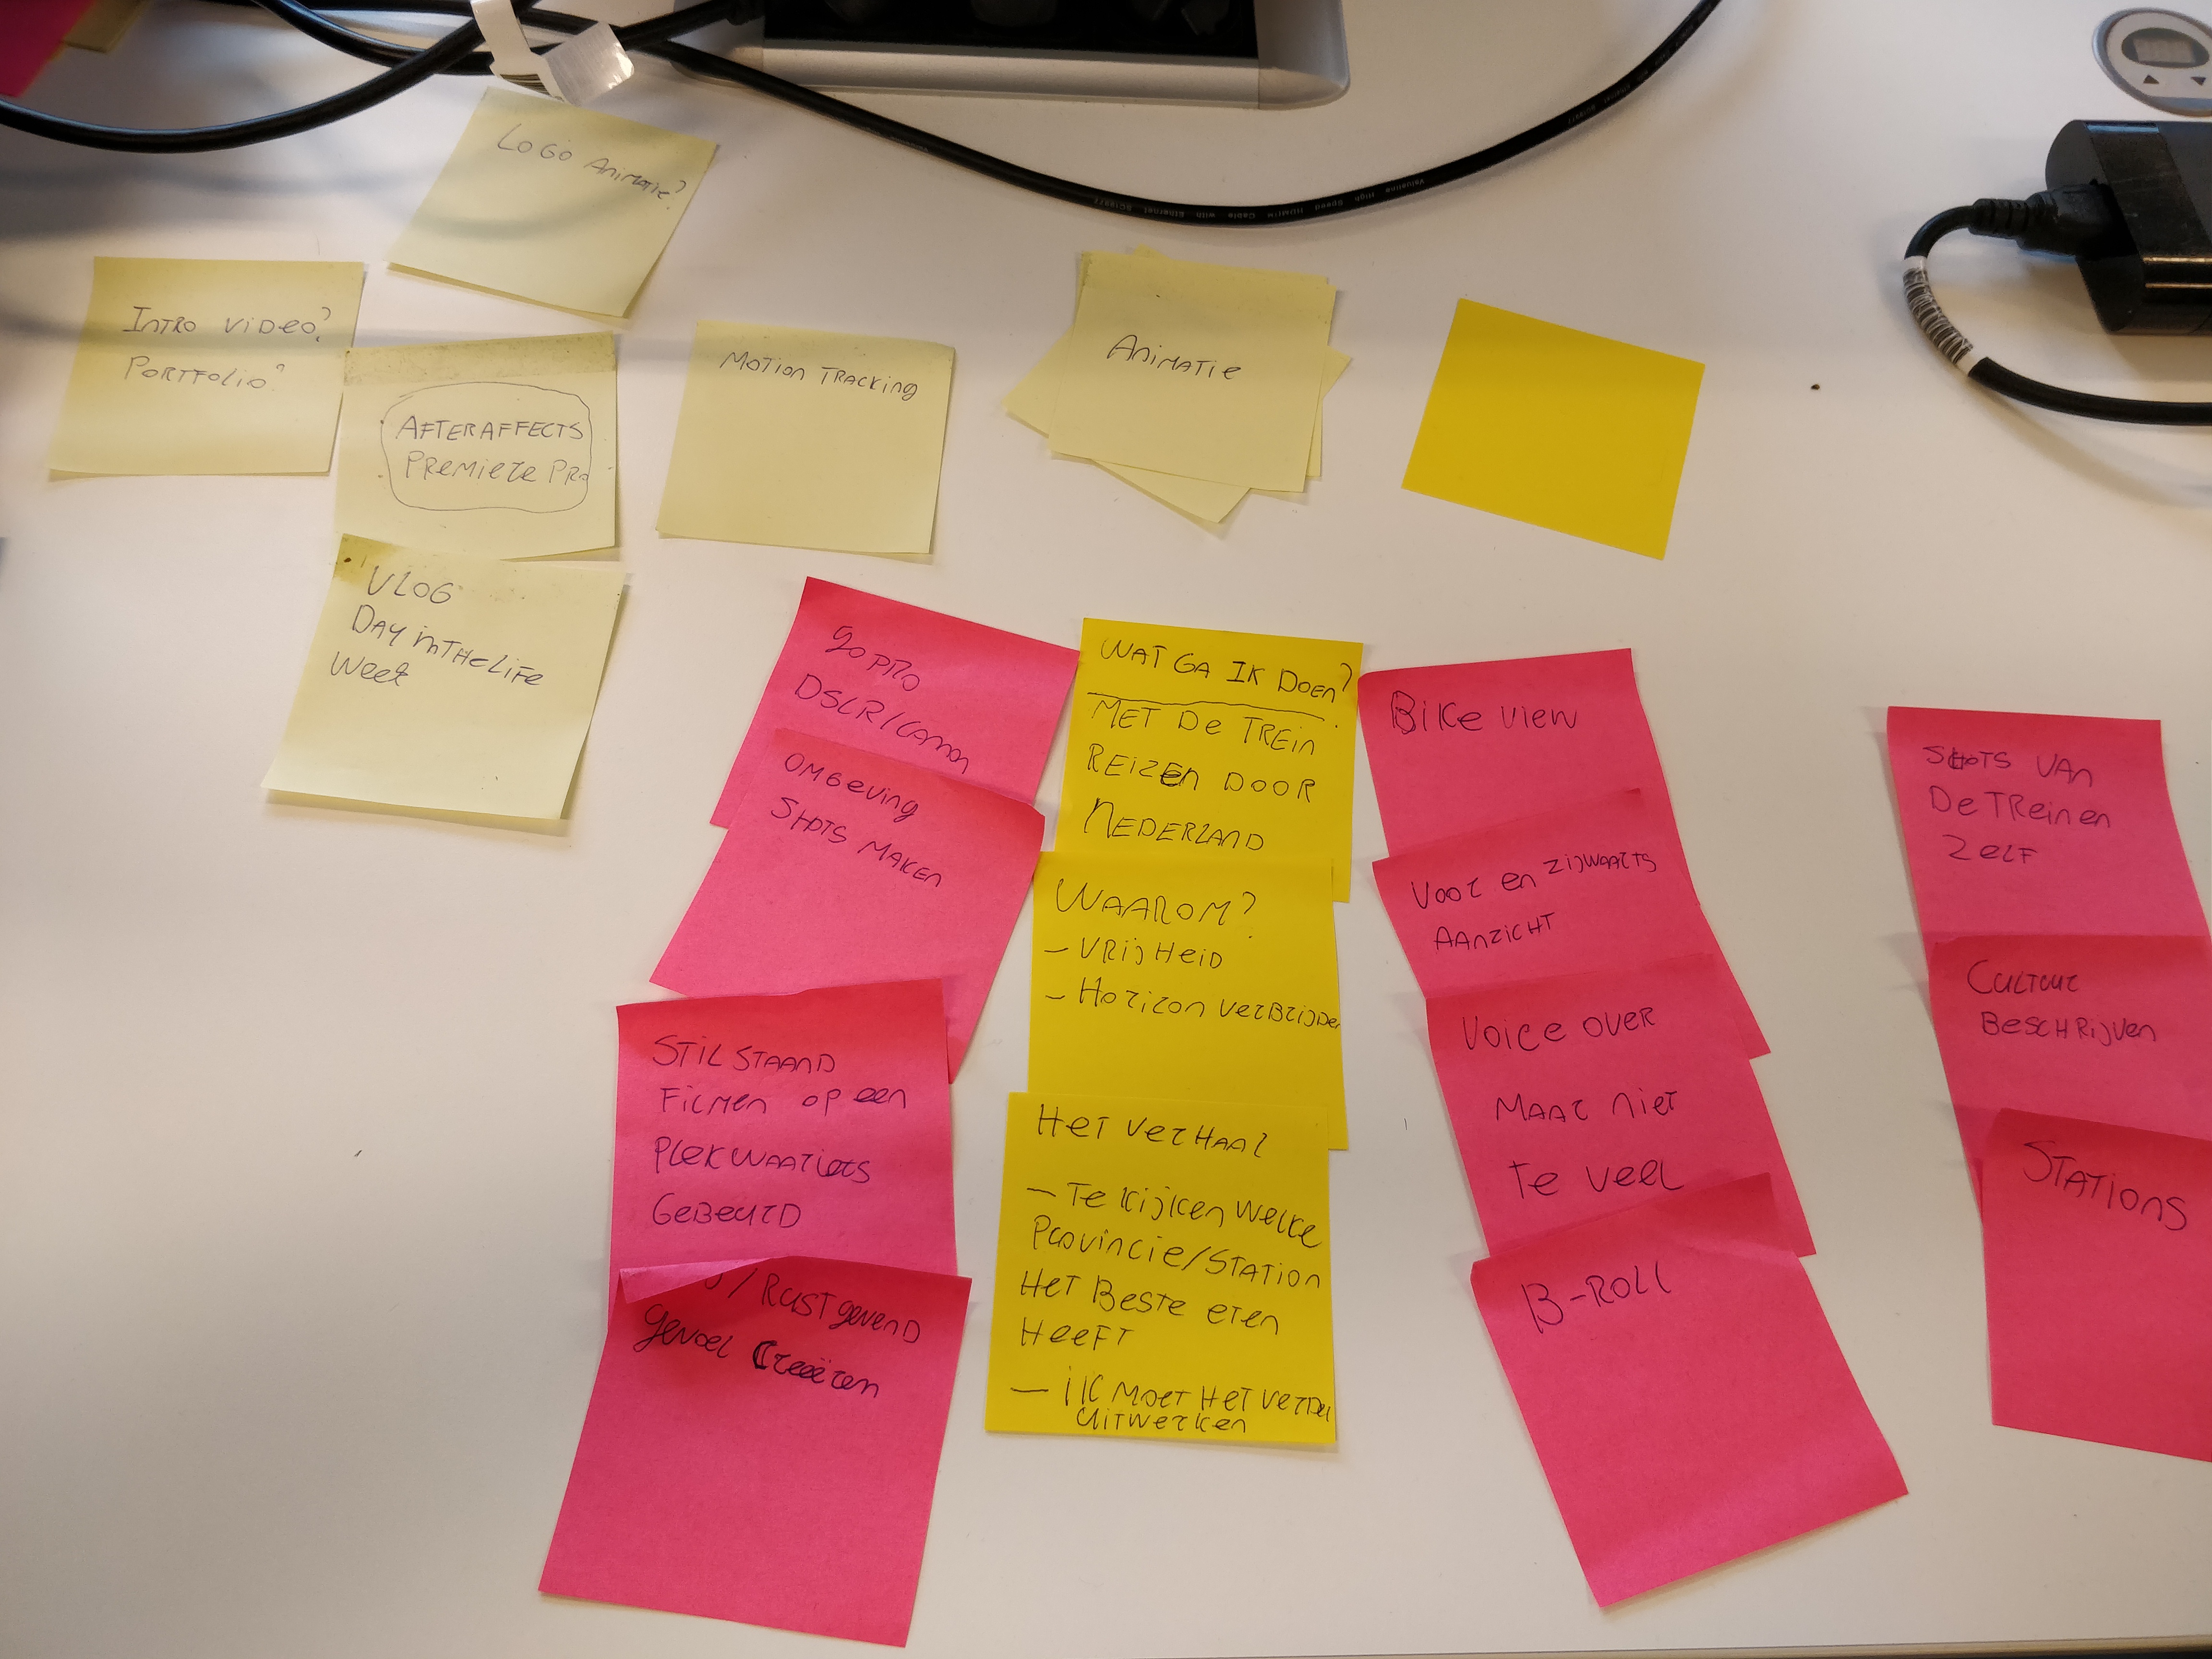 LOGO ANIMATIE?
INTRO VIDEO?
PORTFOLIO?
AFTERAFFECTS
PREMIERE PRO
MOTION TRACKING
ANIMATIE
VLOG
DAY IN THE LIFE
WEEK
GO PRO
DSLR/CANON
OMGEVING
SHOTS MAKEN
STILSTAAND
FILMEN OP EEN
PLEK WAAR IETS
GEBEURD
/ RUSTGEVEND
GEVOEL CREËREN
WAT GA IK DOEN?
MET DE TREIN
REIZEN DOOR
NEDERLAND
WAAROM?
- VRIJHEID
- HORIZON VERBRIJDEN
HET VERHAAL
- TE KIJKEN WELKE
PROVINCIE/STATION
HET BESTE ETEN
HEEFT
- IK MOET HET VERDER
UITWERKEN
BIKE VIEW
VOOR EN ZIJWAARTS
AANZICHT
VOICE OVER
MAAR NIET
TE VEEL
B-ROLL
SHOTS VAN
DE TREINEN
ZELF
CULTUUR
BESCHRIJVEN
STATIONS
Valueline High Speed HDMI™ Cable with Ethernet